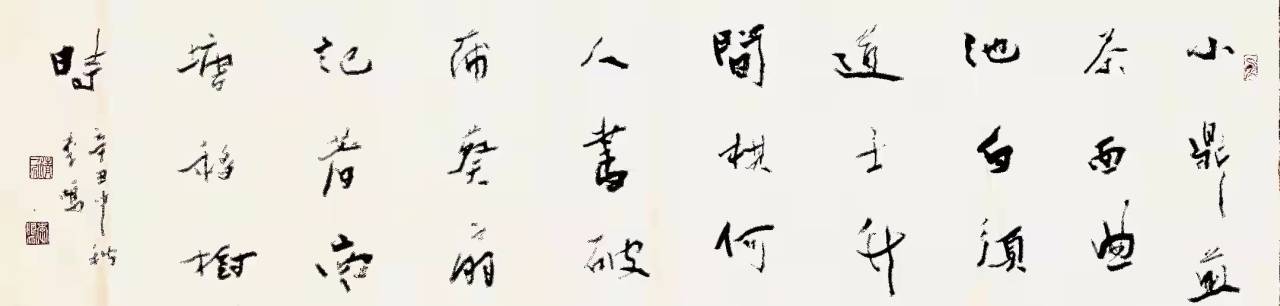 小鼎煎
茶面曲
池白須
道士竹
間棋何
人書破
蒲葵扇
記著南
塘移樹
時
辛丑中秋
李鳴